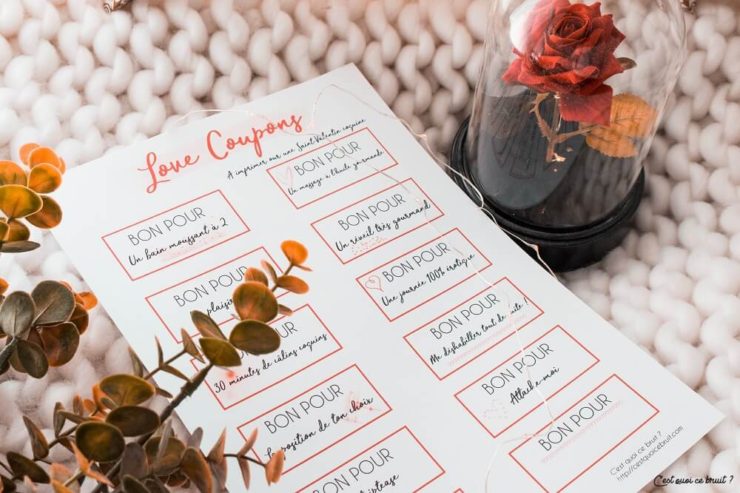 Love Coupons
A imprimer sur une Saint Valentin coquine
BON POUR
Un bain moussant à 2
BON POUR
plaisir
BON POUR
30 minutes de câlins coquins
BON POUR
La position de ton choix
BON POUR
BON POUR
Un massage à l'huile gourmande
BON POUR
Un réveil très gourmand
BON POUR
Une journée 100% érotique
BON POUR
Me déshabiller tout de suite !
BON POUR
Attache-moi
BON POUR
C'est quoi ce bruit ?
http://cestquoicebruit.com
C'est quoi ce bruit ?